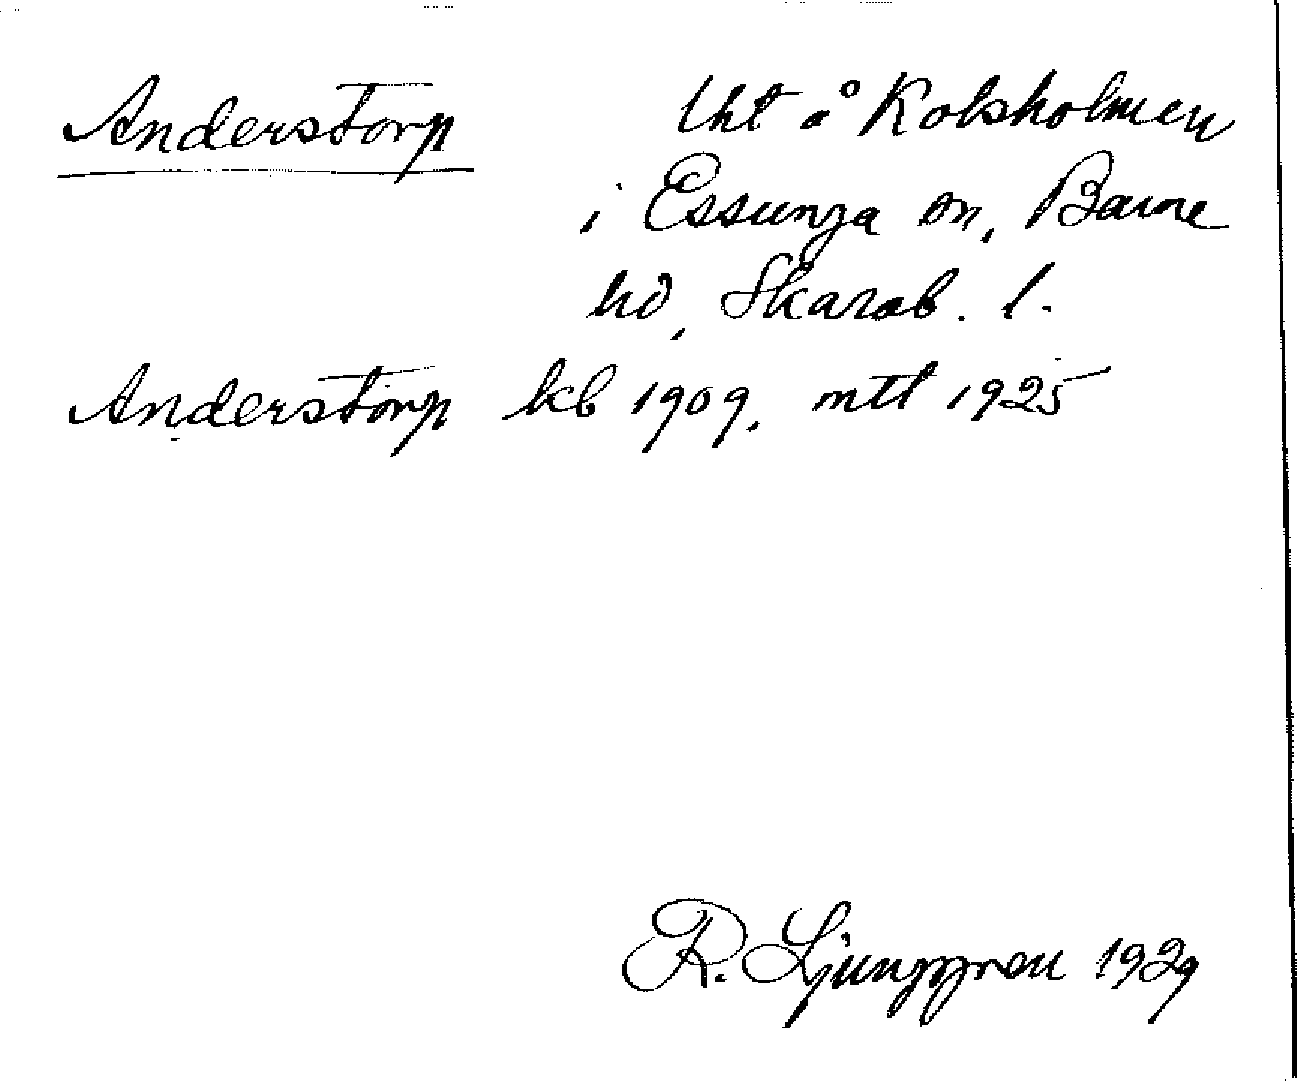 Anderstorp Lht å Kolsholmen
i Essunga sn, Barne
hd, Skarab. l.
Anderstorp kb 1909, mtl 1925
R. Ljunggren 1929